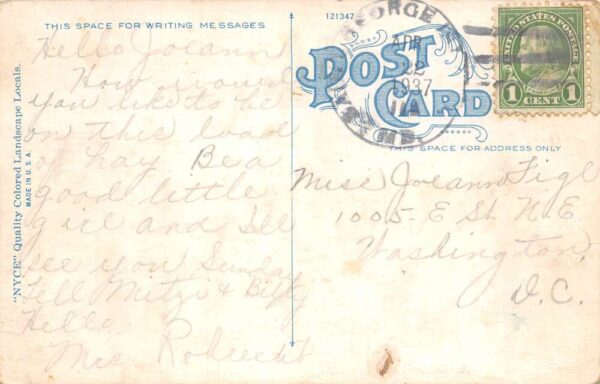 THIS SPACE FOR WRITING MESSAGES
Hello Joeann
How would
you like to be
on this load
of hay. Be a
good little
girl and I'll
see you Sunday
Tell Mitzi & Billy
Hello.
Mrs
"NYCE" Quality Colored Landscape Locals.
MADE IN U.S.A.
121347
POST CARD
GEORGE
APR
22
1937
UNITED STATES POSTAGE
1 CENT 1
THIS SPACE FOR ADDRESS ONLY
Miss Joeann Figl
1005- E St. N.E.
Washington,
D.C.